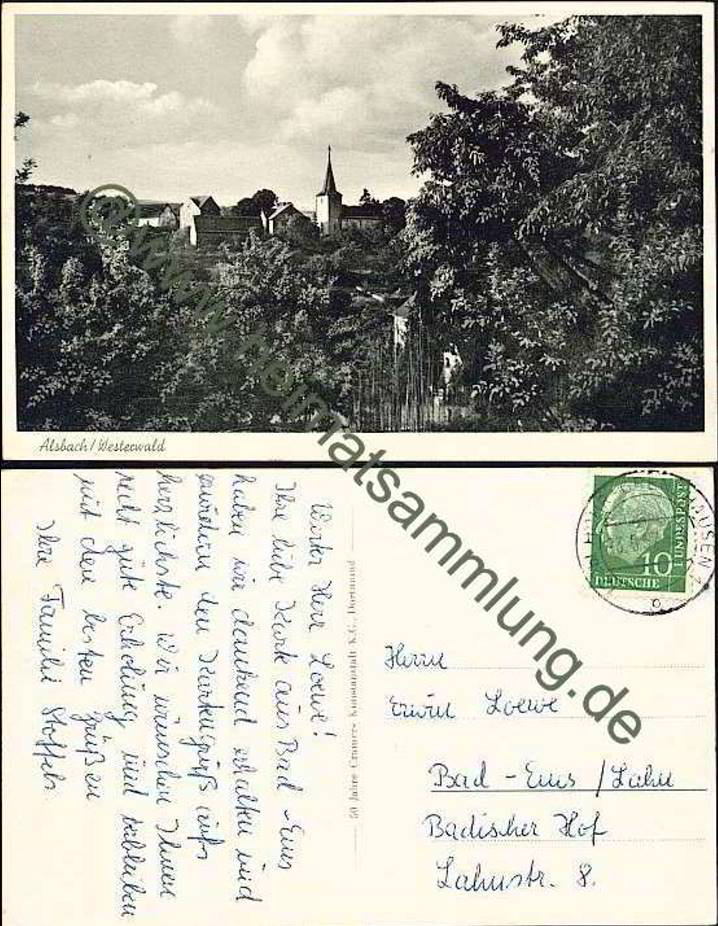 Alsbach/Westerwald
www.heimatsammlung.de
Werter Herr Loewe!
Ihre liebe Karte aus Bad-Ems
haben wir dankend erhalten und
erwidern den Kartengruß aufs
herzlichste. Wir wünschen Ihnen
recht gute Erholung und verbleiben
mit den besten Grüßen
Ihre Familie Stoffels.
50 Jahre Cramers Kunstanstalt K.G., Dortmund
HAUSEN
10
DEUTSCHE
BUNDESPOST
Herrn
Erwin Loewe
Bad-Ems/Lahn
Badischer Hof
Lahnstr. 8.